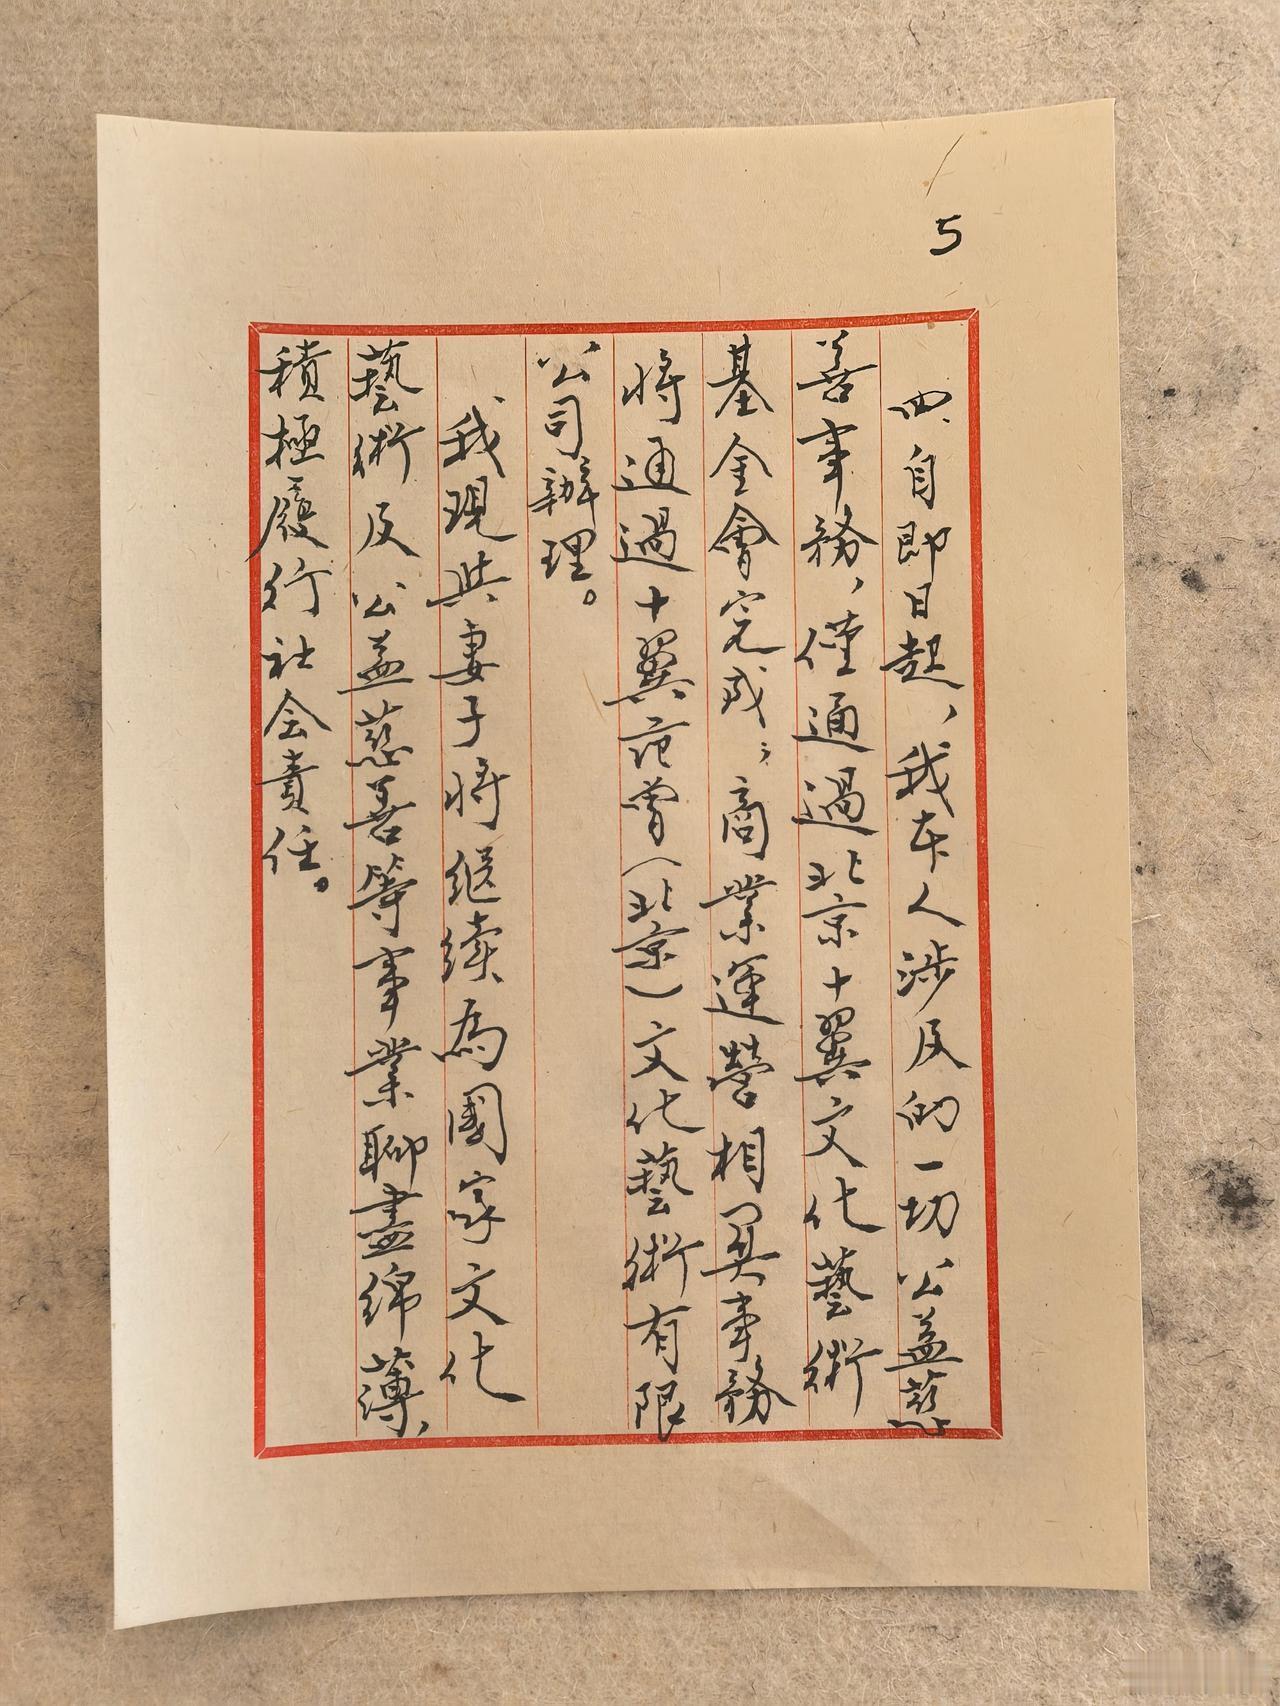 5
四、自即日起，我本人涉及的一切公益慈
善事務，僅通過北京十翼文化藝術
基金會完成；商業運營相關事務
将通過十翼范曾（北京）文化藝術有限
公司辦理。
我現與妻子将继续為國家文化
藝術及公益慈善等事業聊盡綿薄，
積極履行社会責任。